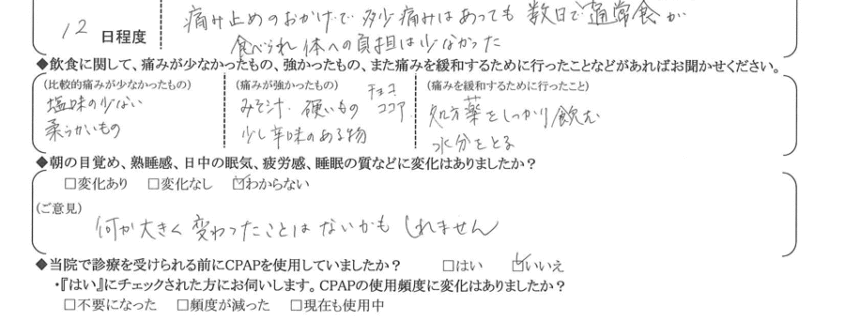 12 日程度
痛み止めのおかげで多少痛みはあっても数日で通常食が
食べられ体への負担は少なかった
◆飲食に関して、痛みが少なかったもの、強かったもの、また痛みを緩和するために行ったことなどがあればお聞かせください。
(比較的痛みが少なかったもの)
塩味の少ない
柔らかいもの
(痛みが強かったもの)
みそ汁・硬いもの チョコ ココア
少し辛味のある物
(痛みを緩和するために行ったこと)
処方薬をしっかり飲む
水分をとる
◆朝の目覚め、熟睡感、日中の眠気、疲労感、睡眠の質などに変化はありましたか？
□変化あり □変化なし ☑わからない
(ご意見)
何か大きく変わったことはないかもしれません
◆当院で診療を受けられる前にCPAPを使用していましたか？ □はい ☑いいえ
・『はい』にチェックされた方にお伺いします。CPAPの使用頻度に変化はありましたか？
□不要になった □頻度が減った □現在も使用中